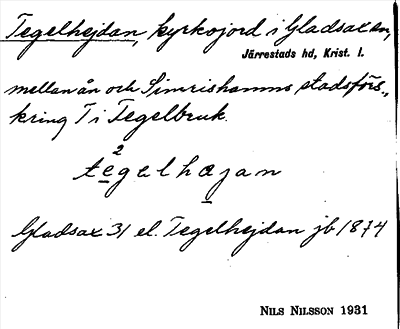 Tegelhejdan, kyrkojord i Gladsax sn,
Järrestads hd, Krist. l.
mellan ån och Simrishamns stadsförs.,
kring T i Tegelbruk.
2
tegelhajan
Gladsax 31 el. Tegelhejdan jb 1874
NILS NILSSON 1931